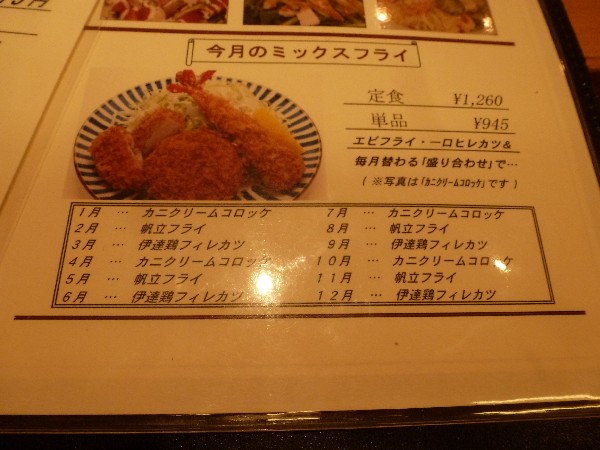 今月のミックスフライ
定食 ¥1,260
単品 ¥945
エビフライ・一口ヒレカツ&
毎月替わる「盛り合わせ」で…
(※写真は「カニクリームコロッケ」です)
1月 … カニクリームコロッケ
2月 … 帆立フライ
3月 … 伊達鶏フィレカツ
4月 … カニクリームコロッケ
5月 … 帆立フライ
6月 … 伊達鶏フィレカツ
7月 … カニクリームコロッケ
8月 … 帆立フライ
9月 … 伊達鶏フィレカツ
10月 … カニクリームコロッケ
11月 … 帆立フライ
12月 … 伊達鶏フィレカツ